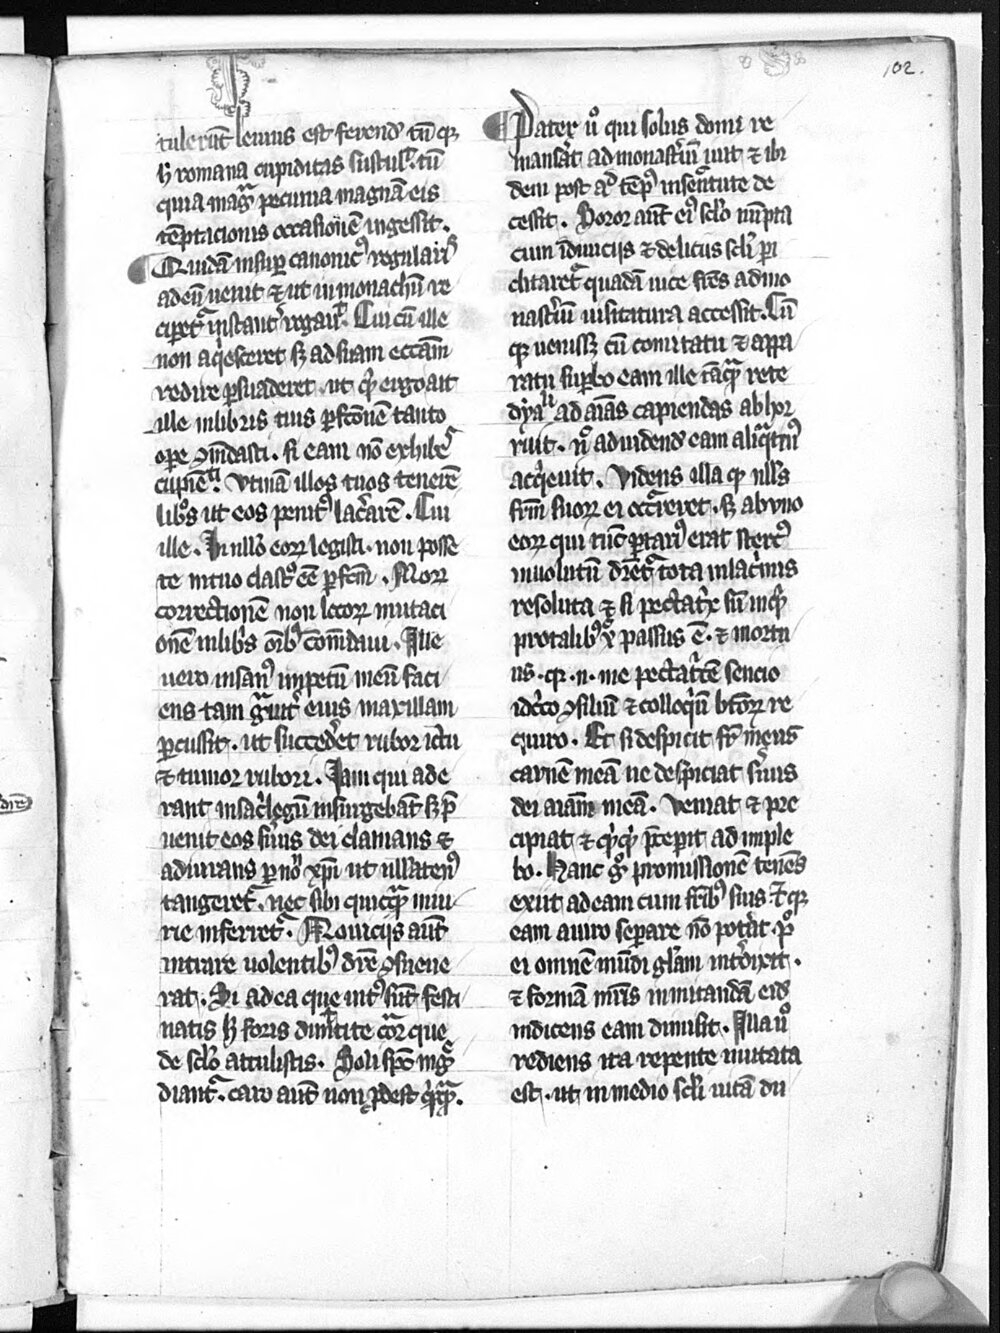 102.
tulerūt leuius est ferend' tn̄ qꝫ
h̄ romana cupiditas sustul' tn̄
quia mag̃ pecunia magnā eis
tēptacionis occasionē ingessit.
Quidā insup canonic' regularis
ad eū uenit & ut in monachū re
ciperet' instant' rogauit. Cui cū ille
non aq̇esceret sꝫ ad suam eccām
redire ꝑsuaderet. ut qͥd ergo ait
ille in libris tuis ꝑfc̄onē tanto
oꝑe ꝯm̄dasti. si eam nō exhibes
cupienti. Vtinā illos tuos tenerē
libros ut eos penit' lac̓arē. Cui
ille. In nullo eoꝝ legisti. non posse
te in tuo claustro eē ꝑfcm̄. Moꝝ
correctionē non locoꝝ mutaci
onē in libris om̄ib' com̄daui. Ille
uero insan' impetū in eū faci
ens tam g̃uit' eius maxillam
ꝑcussit. ut succederet rubor ictu
& tumor rubori. Jam qui ade
rant in sac̓legū insurgebāt sꝫ p̄
uenit eos s̓uus dei clamans &
adiurans ꝑ nom̄ xp̄i ut ullaten'
tangeret'. nec sibi quicq̃m iniu
rie inferret'. Nouiciis aūt
intrare uolentib' dic̓e ꝯsueue
rat. Si ad ea que int' sūt festi
natis h̄ foris dimittite corꝑa que
de sclo attulistis. Soli sp̄c ing̃
diant'. caro aūt non ꝓdest q̇cq̃m.
Pater u̇ qui solus domi re
mansat ad monastiū iuit & ibi
dem post aliq̃ tēp' in senectute de
cessit. Soror aūt ei' sclo nupta
cum in diuiciis & deliciis scli ꝑi
clitaret' quadā uice frēs ad mo
nast̓iū uisitatura accessit. Cū
qꝫ uenissꝫ cū comitatu & appa
ratu suꝑbo eam ille tāq̃m rete
dyaboli ad aīas capiendas abhor
ruit. n̄ ad uidend' eam aliq̃ten'
acq̇euit. Videns illa qꝫ nullus
fr̄m suoꝝ ei occ̓reret. sꝫ ab uno
eoꝝ qui tūc portari' erat sterc'
inuolutū dic̓et' tota in lac̓mis
resoluta & si peccat̓x sū inq̇t
pro talib' x̄ passus ē. & mortu
us. qꝫ. n̄. me peccat̓cē sencio
idc̓co ꝯsiliū & colloq̇ū bonoꝝ re
quiro. Et si despicit fr̄ meus
carnē meā ne despiciat s̓uus
dei aīam meā. Veniat & pre
cipiat & qͥcqͥd p̄cepit ad imple
bo. Hanc g̊ promissionē tenēs
exiit ad eam cum fr̄ib' suis. & qꝫ
eam a uiro seꝑare nō potat p̊
ei omnē mūdi gl̄am int̓dixit.
& formā mr̄is imitandā eid'
indicens eam dimisit. Illa u̇
rediens ita repente mutata
est. ut in medio scli uitā du